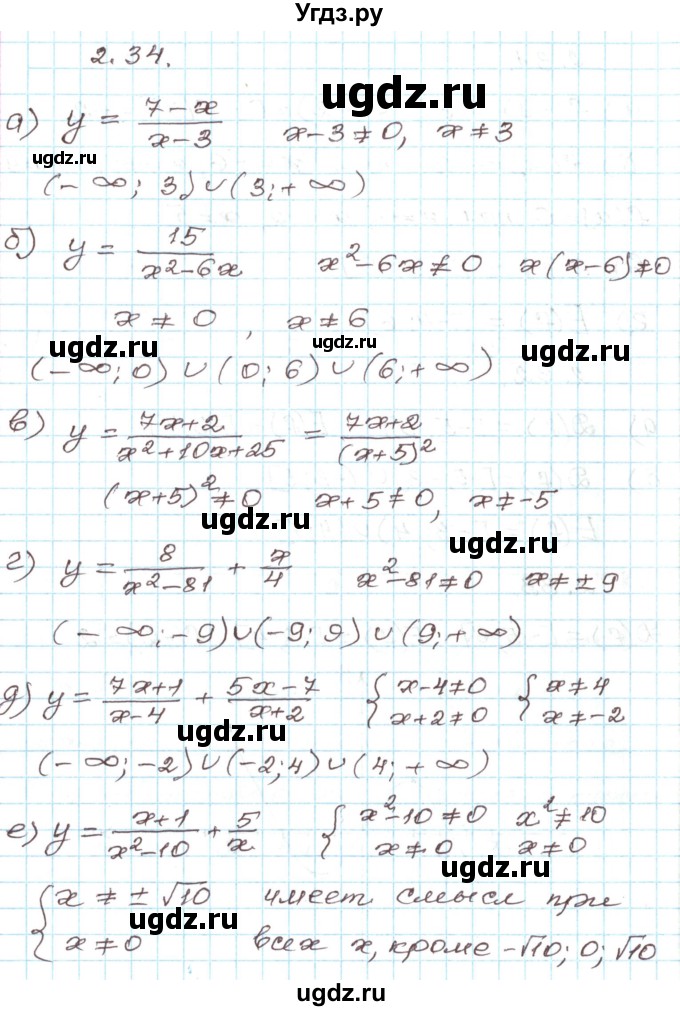 Угдз.ру
2.34.
ugdz.ru
а) y = (7-x)/(x-3)   x-3≠0, x≠3
ugdz.ru
(-∞; 3)∪(3;+∞)
б) y = 15/(x²-6x)   x²-6x≠0   x(x-6)≠0
x≠0, x≠6
ugdz.ru ugdz.ru ugdz.ru
(-∞;0)∪(0;6)∪(6;+∞)
в) y = (7x+2)/(x²+10x+25) = (7x+2)/(x+5)²
(x+5)²≠0   x+5≠0, x≠-5
ugdz.ru
ugdz.ru
г) y = 8/(x²-81) + x/4   x²-81≠0   x≠±9
(-∞;-9)∪(-9;9)∪(9;+∞)
ugdz.ru
д) y = (7x+1)/(x-4) + (5x-7)/(x+2)   { x-4≠0 x+2≠0   { x≠4 x≠-2
ugdz.ru
(-∞;-2)∪(-2;4)∪(4;+∞)
е) y = (x+1)/(x²-10) + 5/x   { x²-10≠0 x≠0   x²≠10 x≠0
ugdz.ru
{ x≠±√10 x≠0   имеет смысл при
ugdz.ru
всех x, кроме -√10; 0; √10
ugdz.ru